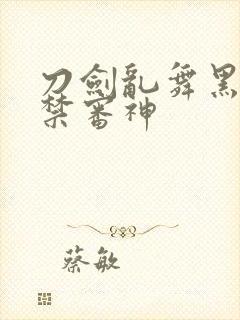 刀劍亂舞黑
禁審神
蔡敏